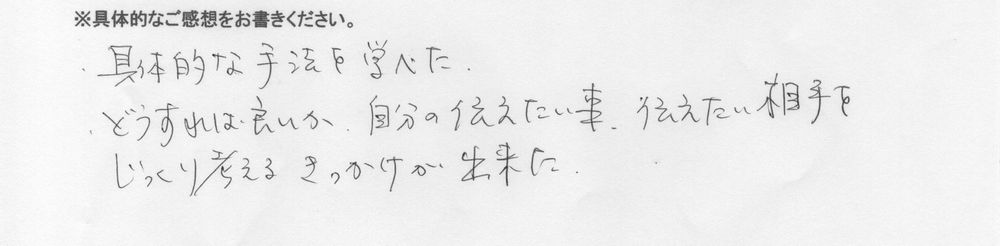 ※具体的なご感想をお書きください。
・具体的な手法を学べた.
・どうすれば良いか、自分の伝えたい事、伝えたい相手を
じっくり考えるきっかけが出来た.